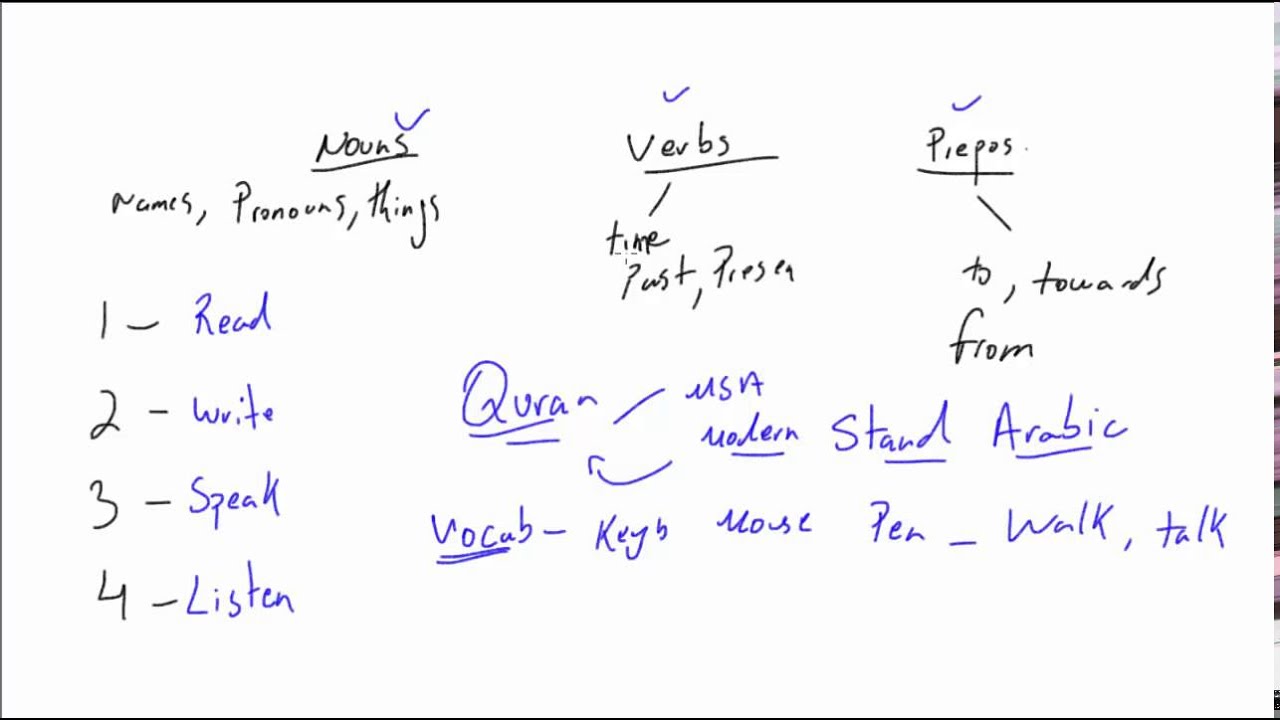 Nouns Verbs Prepos.
Names, Pronouns, things
time
Past, Presen
to, towards
from
1 - Read
2 - Write
3 - Speak
4 - Listen
Quran MSA
Modern Stand Arabic
Vocab - Keyb Mouse Pen - Walk, talk